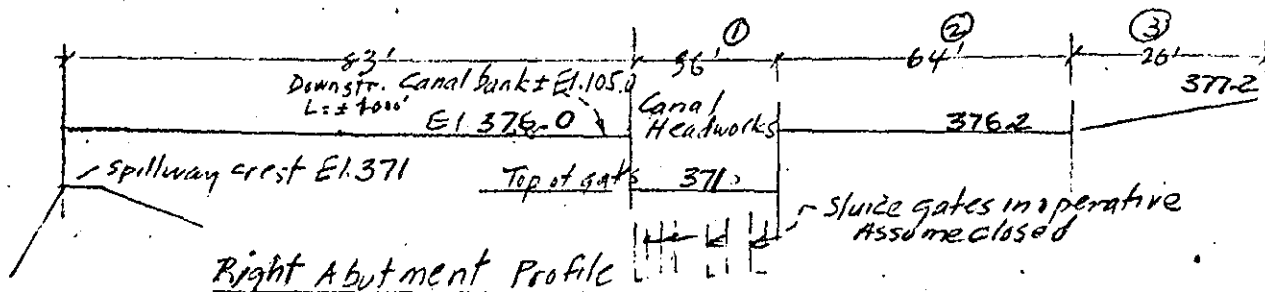 ① ② ③
83' 36' 64' 26'
Downstr. Canal bank ± El. 105.0
L = ± 1000'
377.2
El 376.0
Canal
Headworks
376.2
Spillway crest El. 371
Top of gates 371.
Sluice gates inoperative
Assume closed
Right Abutment Profile